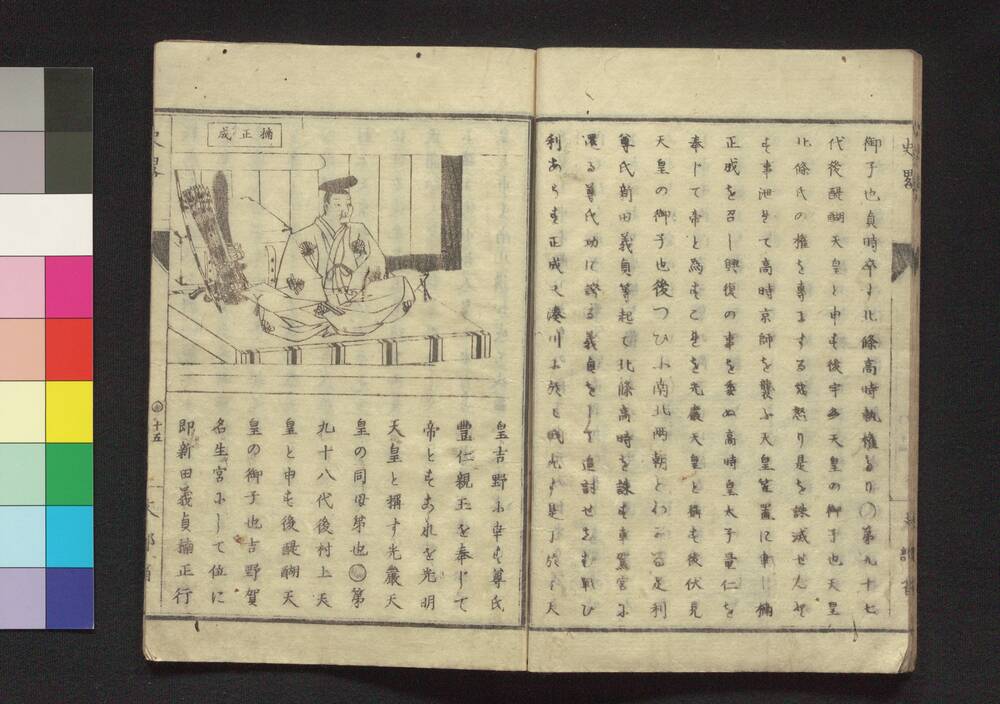 御子也貞時卒す北條高時執權たり〇第九十七
代後醍醐天皇と申す後宇多天皇の御子也天皇
北條氏の權を專にするを怒り是を誅滅せんとす
も事泄れて高時京師を襲ふ天皇笠置に幸し楠
正成を召し興復の事を委ぬ高時皇太子量仁を
奉じて帝と為すこれを光嚴天皇と稱す後伏見
天皇の御子也後つひに南北両朝とわかる足利
尊氏新田義貞等起て北條高時を誅す車駕宮に
還る尊氏功に誇る義貞をして追討せしむ戰ひ
利あらず正成又湊川に於て戰死す是に於て天
楠正成
皇吉野に幸す尊氏
豊仁親王を奉じて
帝とすあれを光明
天皇と稱す光嚴天
皇の同母弟也〇第
九十八代後村上天
皇と申す後醍醐天
皇の御子也吉野賀
名生宮にして位に
即新田義貞楠正行
十五